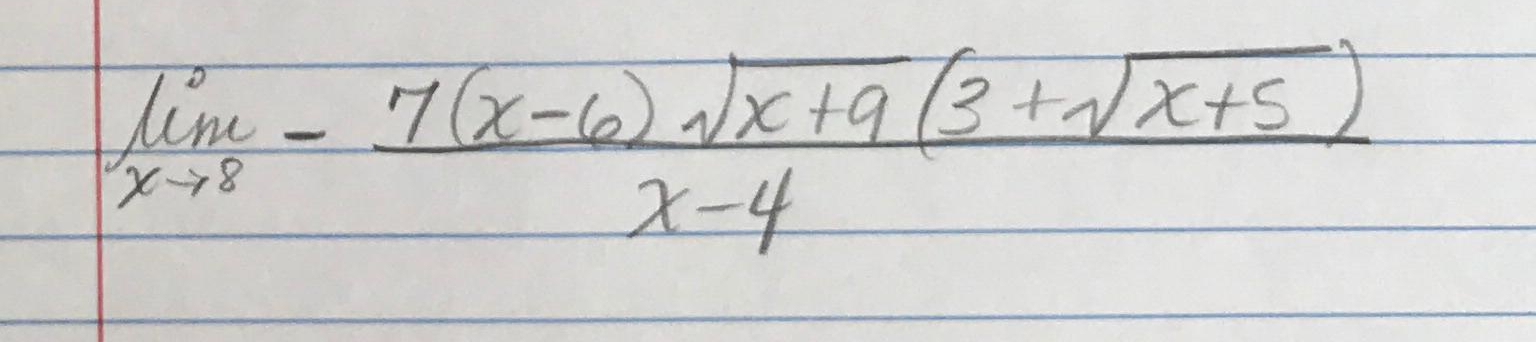 lim x→8 - 7(x-6)√x+9 (3+√x+5) / x-4